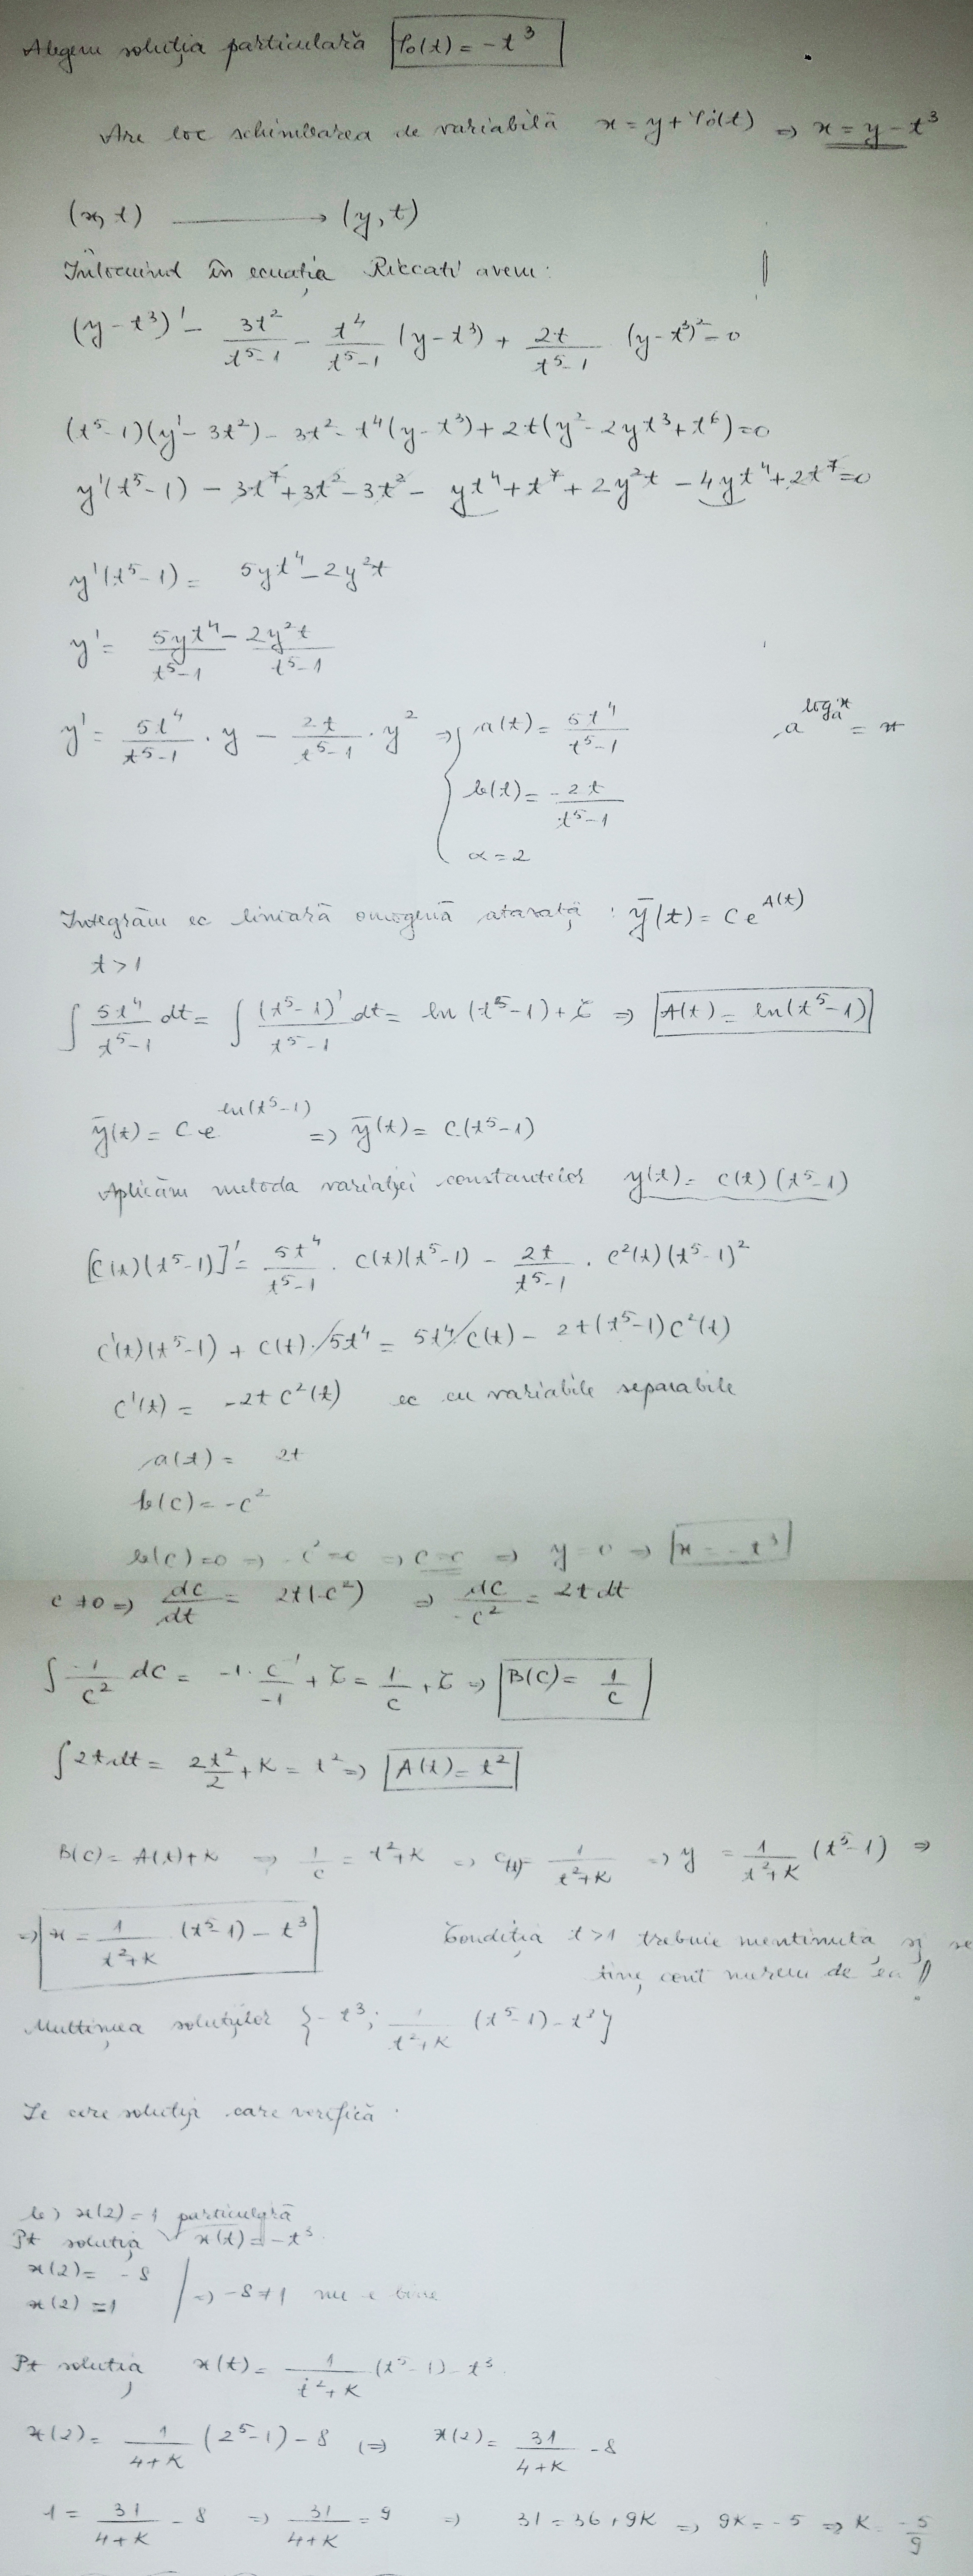 Alegem soluția particulară φ₀(t) = -t³
Are loc schimbarea de variabilă x = y + φ₀(t) ⇒ x = y - t³
(x, t) ⟶ (y, t)
Înlocuind în ecuația Riccati avem:
(y - t³)' - 3t²/(t⁵-1) - t⁴/(t⁵-1) (y - t³) + 2t/(t⁵-1) (y - t³)² = 0
(t⁵-1)(y' - 3t²) - 3t² - t⁴(y - t³) + 2t(y² - 2yt³ + t⁶) = 0
y'(t⁵-1) - 3t⁷ + 3t² - 3t² - yt⁴ + t⁷ + 2y²t - 4yt⁴ + 2t⁷ = 0
y'(t⁵-1) = 5yt⁴ - 2y²t
y' = 5yt⁴/(t⁵-1) - 2y²t/(t⁵-1)
y' = 5t⁴/(t⁵-1) · y - 2t/(t⁵-1) · y² ⇒ { a(t) = 5t⁴/(t⁵-1) a^(logₐx) = x
b(t) = -2t/(t⁵-1)
α = 2
Integrăm ec liniară omogenă atașată: ȳ(t) = C e^A(t)
t > 1
∫ 5t⁴/(t⁵-1) dt = ∫ (t⁵-1)'/(t⁵-1) dt = ln(t⁵-1) + C ⇒ A(t) = ln(t⁵-1)
ȳ(t) = C·e^ln(t⁵-1) ⇒ ȳ(t) = C·(t⁵-1)
Aplicăm metoda variației constantelor y(t) = C(t)(t⁵-1)
[C(t)(t⁵-1)]' = 5t⁴/(t⁵-1) · C(t)(t⁵-1) - 2t/(t⁵-1) · C²(t)(t⁵-1)²
C'(t)(t⁵-1) + C(t)·5t⁴ = 5t⁴C(t) - 2t(t⁵-1)C²(t)
C'(t) = -2t C²(t) ec cu variabile separabile
a(t) = 2t
b(c) = -c²
b(c) = 0 ⇒ -c² = 0 ⇒ c = 0 ⇒ y = 0 ⇒ x = -t³
c ≠ 0 ⇒ dc/dt = 2t(-c²) ⇒ dc/-c² = 2t dt
∫ -1/c² dc = -1 · c⁻¹/-1 + C = 1/c + C ⇒ B(c) = 1/c
∫ 2t dt = 2t²/2 + K = t² ⇒ A(t) = t²
B(c) = A(t) + K ⇒ 1/c = t² + K ⇒ c(t) = 1/(t²+K) ⇒ y = 1/(t²+K) (t⁵-1) ⇒
⇒ x = 1/(t²+K) (t⁵-1) - t³ Condiția t > 1 trebuie mentinuta, și se
tine cont mereu de ea!
Multimea soluțiilor {-t³; 1/(t²+K) (t⁵-1) - t³}
Se cere soluția care verifică:
b) x(2) = 1 particulară
Pt soluția x(t) = -t³
x(2) = -8
x(2) = 1 ⇒ -8 ≠ 1 nu e bine
Pt solutia x(t) = 1/(t²+K) (t⁵-1) - t³
x(2) = 1/(4+K) (2⁵-1) - 8 (⇒) x(2) = 31/(4+K) - 8
1 = 31/(4+K) - 8 ⇒ 31/(4+K) = 9 ⇒ 31 = 36 + 9K ⇒ 9K = -5 ⇒ K = -5/9